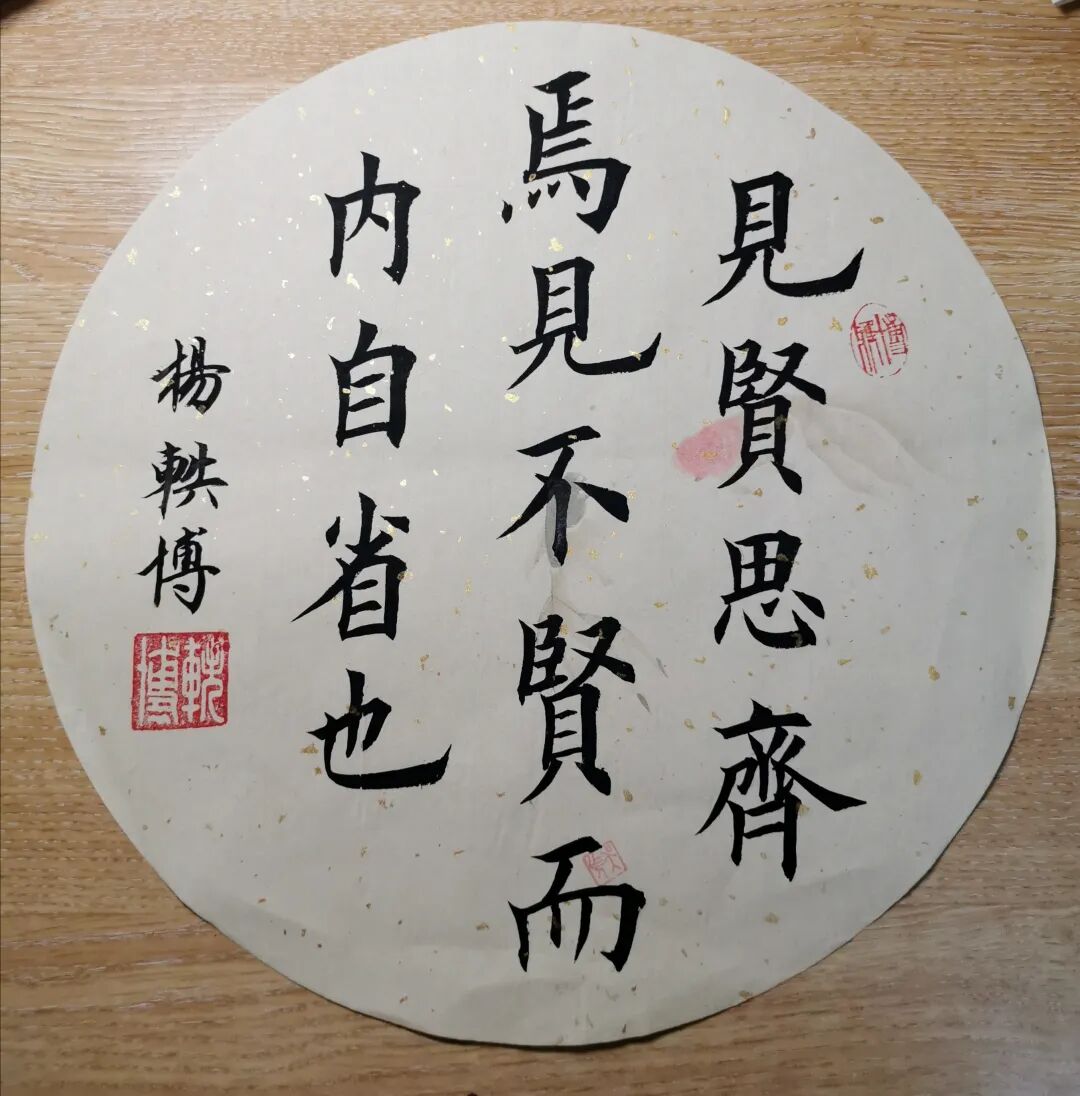 見賢思齊
焉見不賢而
内自省也
楊軼博
軼博